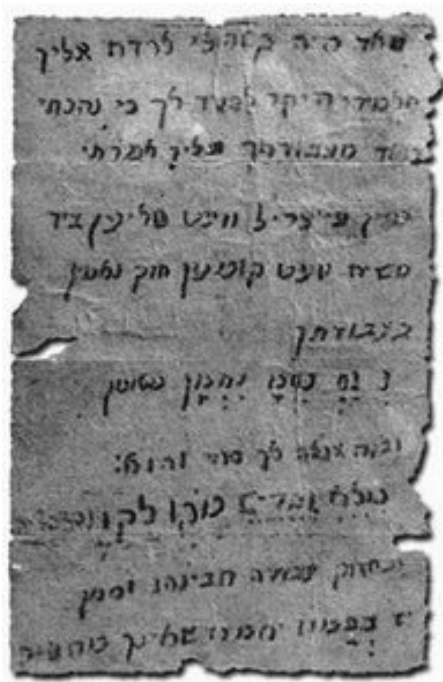 מאד היה קשה לי לרדת אליך
תלמידי היקר להגיד לך כי נהנתי
מאד מעבודתך ועליך אמרתי
מיין פייערל וועט טלוען ביז
משיח וועט קומען חזק ואמץ
בעבודתך
נ נח נחמ נחמן מאומן
ובזה אגלה לך סוד והוא:
מלא וגדיש מקו לקו
עבודה תבינהו וסימן
יז בתמוז יאמרו שאינך מתענה